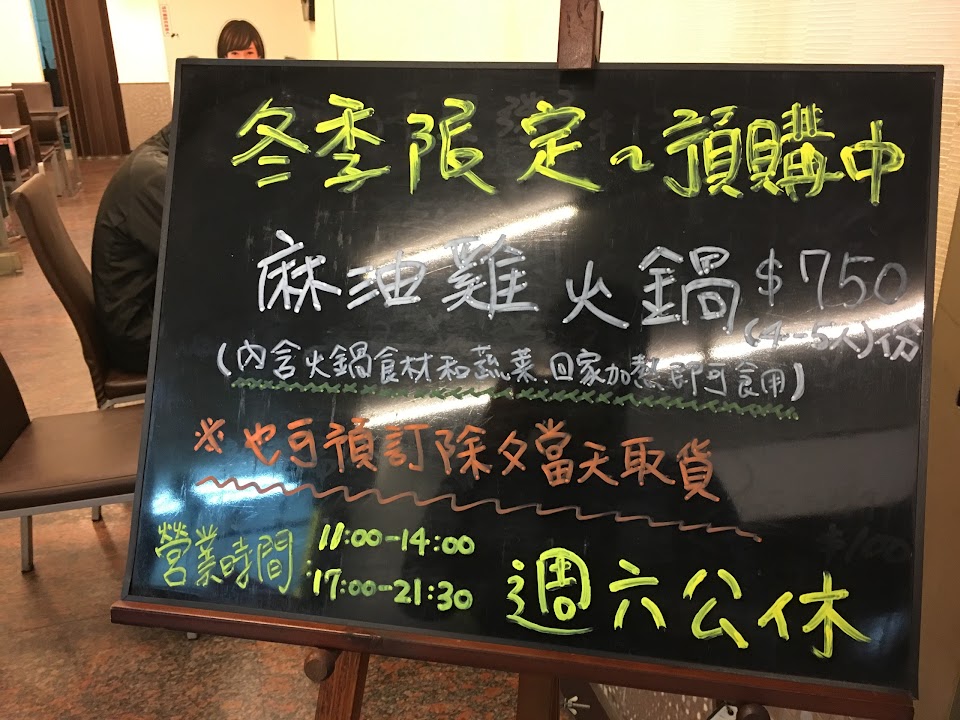 冬季限定~預購中
麻油雞火鍋$750
(4-5人)份
(內含火鍋食材和蔬菜.回家加熱即可食用)
※也可預訂除夕當天取貨
營業時間:11:00-14:00
17:00-21:30
週六公休